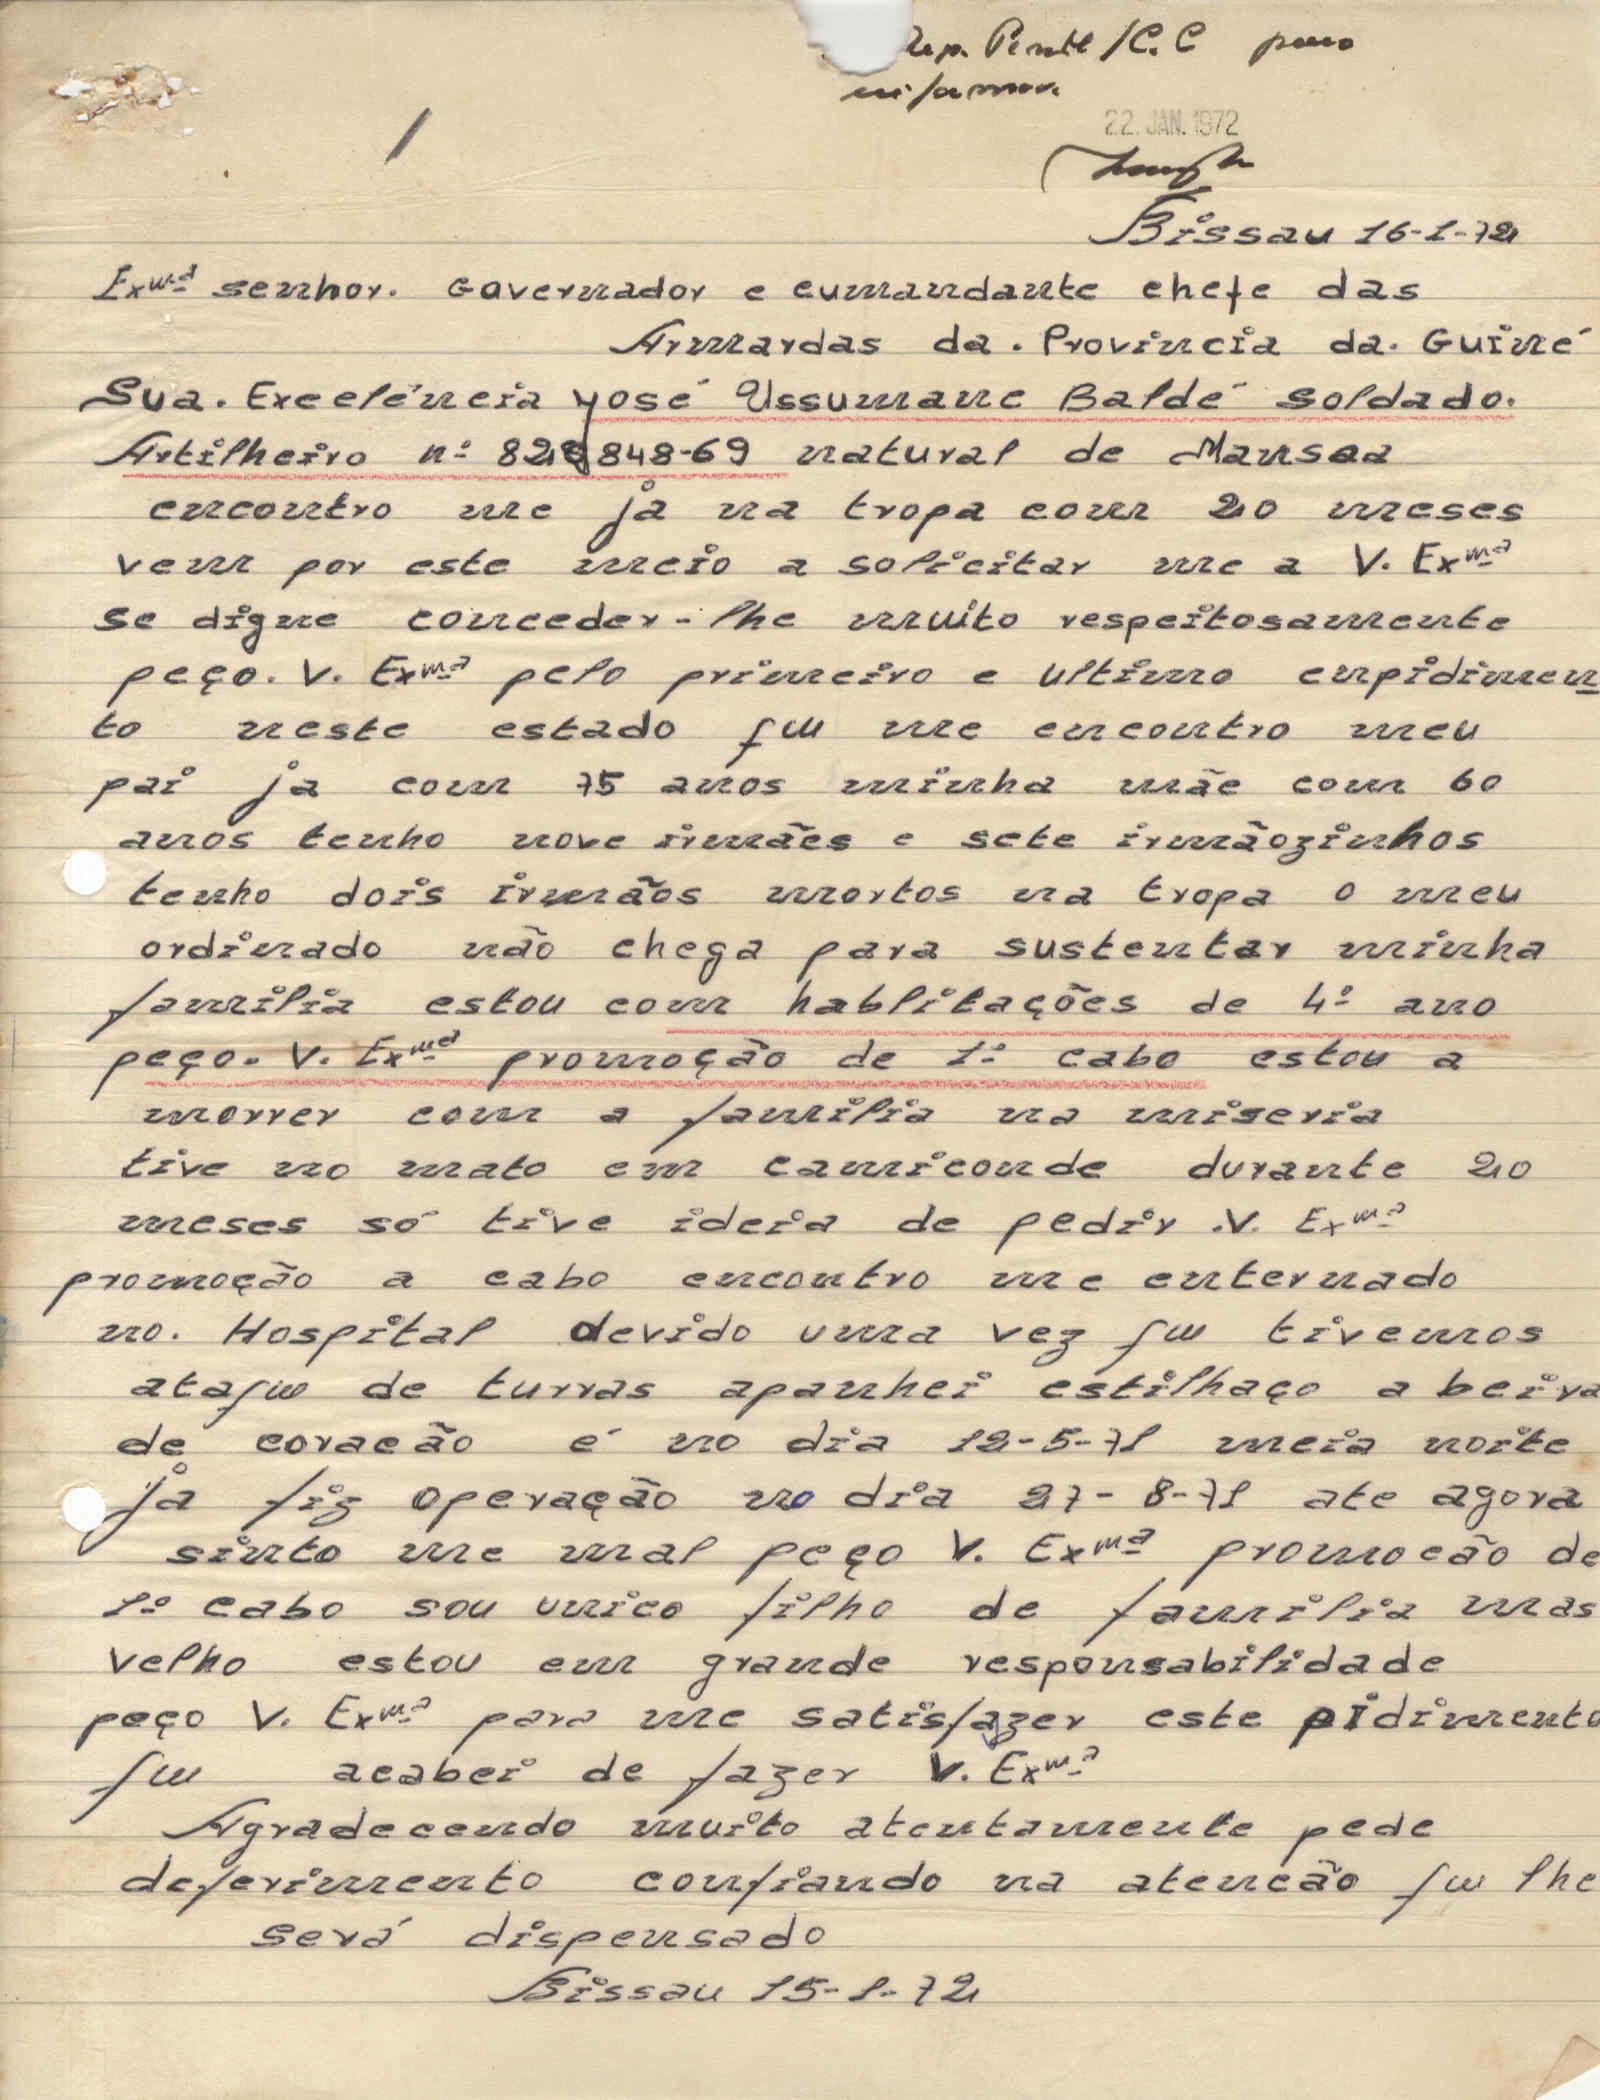 Rep. Pessoal/C.C para
informar.
22. JAN. 1972
Bissau 16-1-72
Exmª senhor. Governador e cumandante chefe das
Armardas da. Provincia da. Guiné
Sua. Excelência yosé Ussumane Baldé soldado.
Artilheiro nº 82 848-69 natural de Mansoa
encontro me já na tropa com 20 meses
vem por este meio a solicitar me a V. Exmª
se digne conceder-lhe muito respeitosamente
peço. V. Exmª pelo primeiro e ultimo enpidimen
to neste estado qu me encontro meu
pai ja com 75 anos minha mãe com 60
anos tenho nove irmães e sete irmãozinhos
tenho dois irmãos mortos na tropa o meu
ordinado não chega para sustentar minha
familia estou com hablitações de 4º ano
peço. V. Exmª promoção de 1º cabo estou a
morrer com a familia na miseria
tive no mato em camiconde durante 20
meses só tive ideia de pedir .V. Exmª
promoção a cabo encontro me enternado
no. Hospital devido uma vez qu tivemos
ataqu de turras apanhei estilhaço a beira
de coracão é no dia 12-5-71 meia noite
já fiz operação no dia 27-8-71 ate agora
sinto me mal peço V. Exmª promocão de
1º cabo sou unico filho de familia mas
velho estou em grande responsabilidade
peço V. Exmª para me satisfazer este pidimento
qu acabei de fazer V. Exmª
Agradecendo muito atentamente pede
deferimento confiando na atencão qu lhe
será dispensado
Bissau 15-1-72